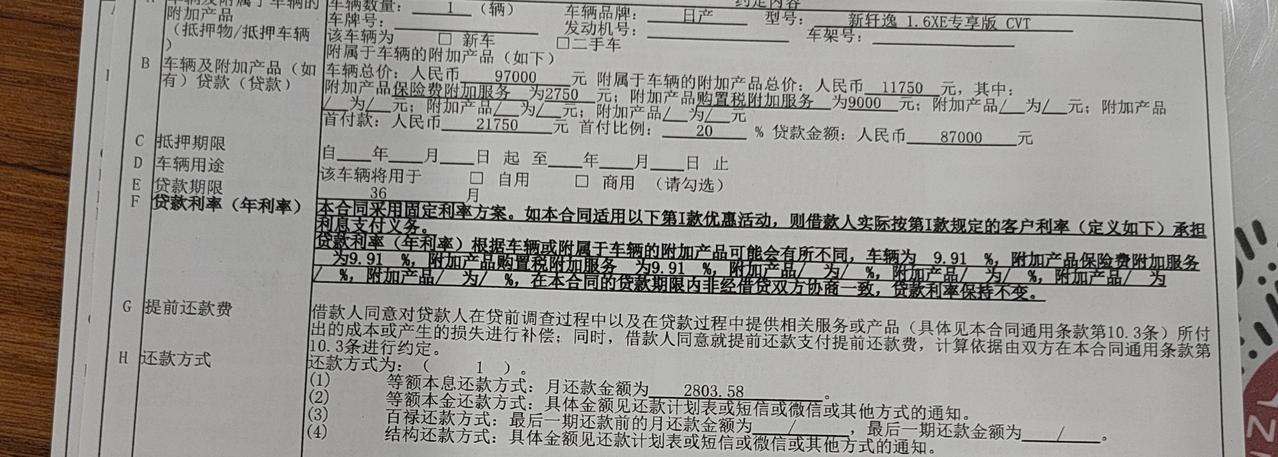 约定内容
车辆及附属于车辆的
附加产品
（抵押物/抵押车辆
）
车辆数量： 1 （辆） 车辆品牌： 日产 型号： 新轩逸 1.6XE专享版 CVT
车牌号： 发动机号： 车架号：
该车辆为 □ 新车 □二手车
附属于车辆的附加产品（如下）
B 车辆及附加产品（如
有）贷款（贷款）
车辆总价：人民币 97000 元 附属于车辆的附加产品总价：人民币 11750 元，其中：
附加产品保险费附加服务 为2750 元；附加产品购置税附加服务 为9000 元；附加产品/ 为/ 元；附加产品
/ 为/ 元；附加产品/ 为/ 元；附加产品/ 为/ 元
首付款：人民币 21750 元 首付比例： 20 % 贷款金额：人民币 87000 元
C 抵押期限
自 年 月 日 起 至 年 月 日 止
D 车辆用途
该车辆将用于 □ 自用 □ 商用 （请勾选）
E 贷款期限
36 月
F 贷款利率（年利率）
本合同采用固定利率方案。如本合同适用以下第I款优惠活动，则借款人实际按第I款规定的客户利率（定义如下）承担
利息支付义务。
贷款利率（年利率）根据车辆或附属于车辆的附加产品可能会有所不同，车辆为 9.91 %，附加产品保险费附加服务
为9.91 %，附加产品购置税附加服务 为9.91 %，附加产品/ 为/ %，附加产品/ 为/ %，附加产品/ 为
/ %，附加产品/ 为/ %，在本合同的贷款期限内非经借贷双方协商一致，贷款利率保持不变。
G 提前还款费
借款人同意对贷款人在贷前调查过程中以及在贷款过程中提供相关服务或产品（具体见本合同通用条款第10.3条）所付
出的成本或产生的损失进行补偿；同时，借款人同意就提前还款支付提前还款费，计算依据由双方在本合同通用条款第
10.3条进行约定。
H 还款方式
还款方式为：（ 1 ）。
(1) 等额本息还款方式：月还款金额为 2803.58 。
(2) 等额本金还款方式：具体金额见还款计划表或短信或微信或其他方式的通知。
(3) 百禄还款方式：最后一期还款前的月还款金额为 / ，最后一期还款金额为 / 。
(4) 结构还款方式：具体金额见还款计划表或短信或微信或其他方式的通知。